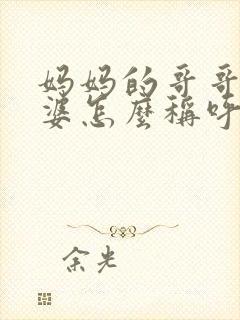 妈妈的哥哥
婆怎麼稱呼
余光